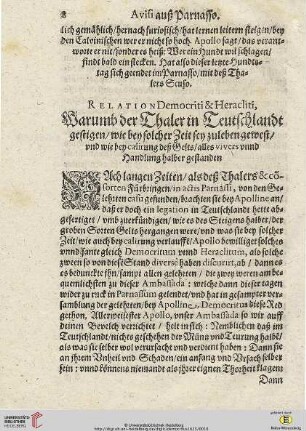 2 Avisi auß Parnasso.
lich gemählich / hernach furiosisch / hat lernen leitern steigen / bey
den Calvinischen wer er nicht so hoch. Apollo sagt / das verant-
worte er nit / sonder es heist: Wer ein Hundt wil schlagen /
findt bald ein stecken. Hat also dieser letzte Hundts-
tag sich geendet im Parnasso / mit deß Tha-
lers Scuso.
RELATION Democriti & Heracliti,
Warumb der Thaler in Teutschlandt
gestigen / wie bey solcher Zeit sey zuleben gewest /
vnd wie bey calirung deß Gelts / alles vivers vnnd
Handlung halber gestanden
NAch langen Zeiten / als deß Thalers &
in actis Parnassi, von den Ge-
lehrten casu gefunden, brachten sie bey Apolline an /
daß er doch ein legation in Teutschlandt hette ab-
gefertiget / vmb zuerkündigen / wie es des Steigens halber / der
groben Sorten Gelts hergangen were / vnd was sie bey solcher
Zeit / wie auch bey calirung verlaufft / Apollo bewilliget solches
vnnd sante gleich Democritum vnnd Heraclitum, als solche
zween so von dieses Standt diverse haben discurat, ab / dann
es bedunckte jhn / sampt allen gelehrten / die zwey weren am be-
quemlichsten zu dieser Ambassada : welche dann dieser tagen
wider zu ruck in Parnassum gelendet / vnd hat in gesampter ver-
samblung der gelehrten / bey Apolline, Democritus diese Red
gethon, Allerweisester Apollo, vnser Ambassada so wir auff
deinen Bevelch verrichtet / helt in sich : Nemblichen daß im
Teutschlandt / nichts geschehen der Müntz vnd Teurung halb /
als was sie selber wol verursacht vnd verdient haben : Dann sie
an jhrem Vnheil vnd Schaden / ein anfang vnd Vrsach selber
sein : vnnd können niemandt als jhrer eignen Thorheit klagen
Dann
UNIVERSITÄTS-
BIBLIOTHEK
HEIDELBERG
© Universitätsbibliothek Heidelberg